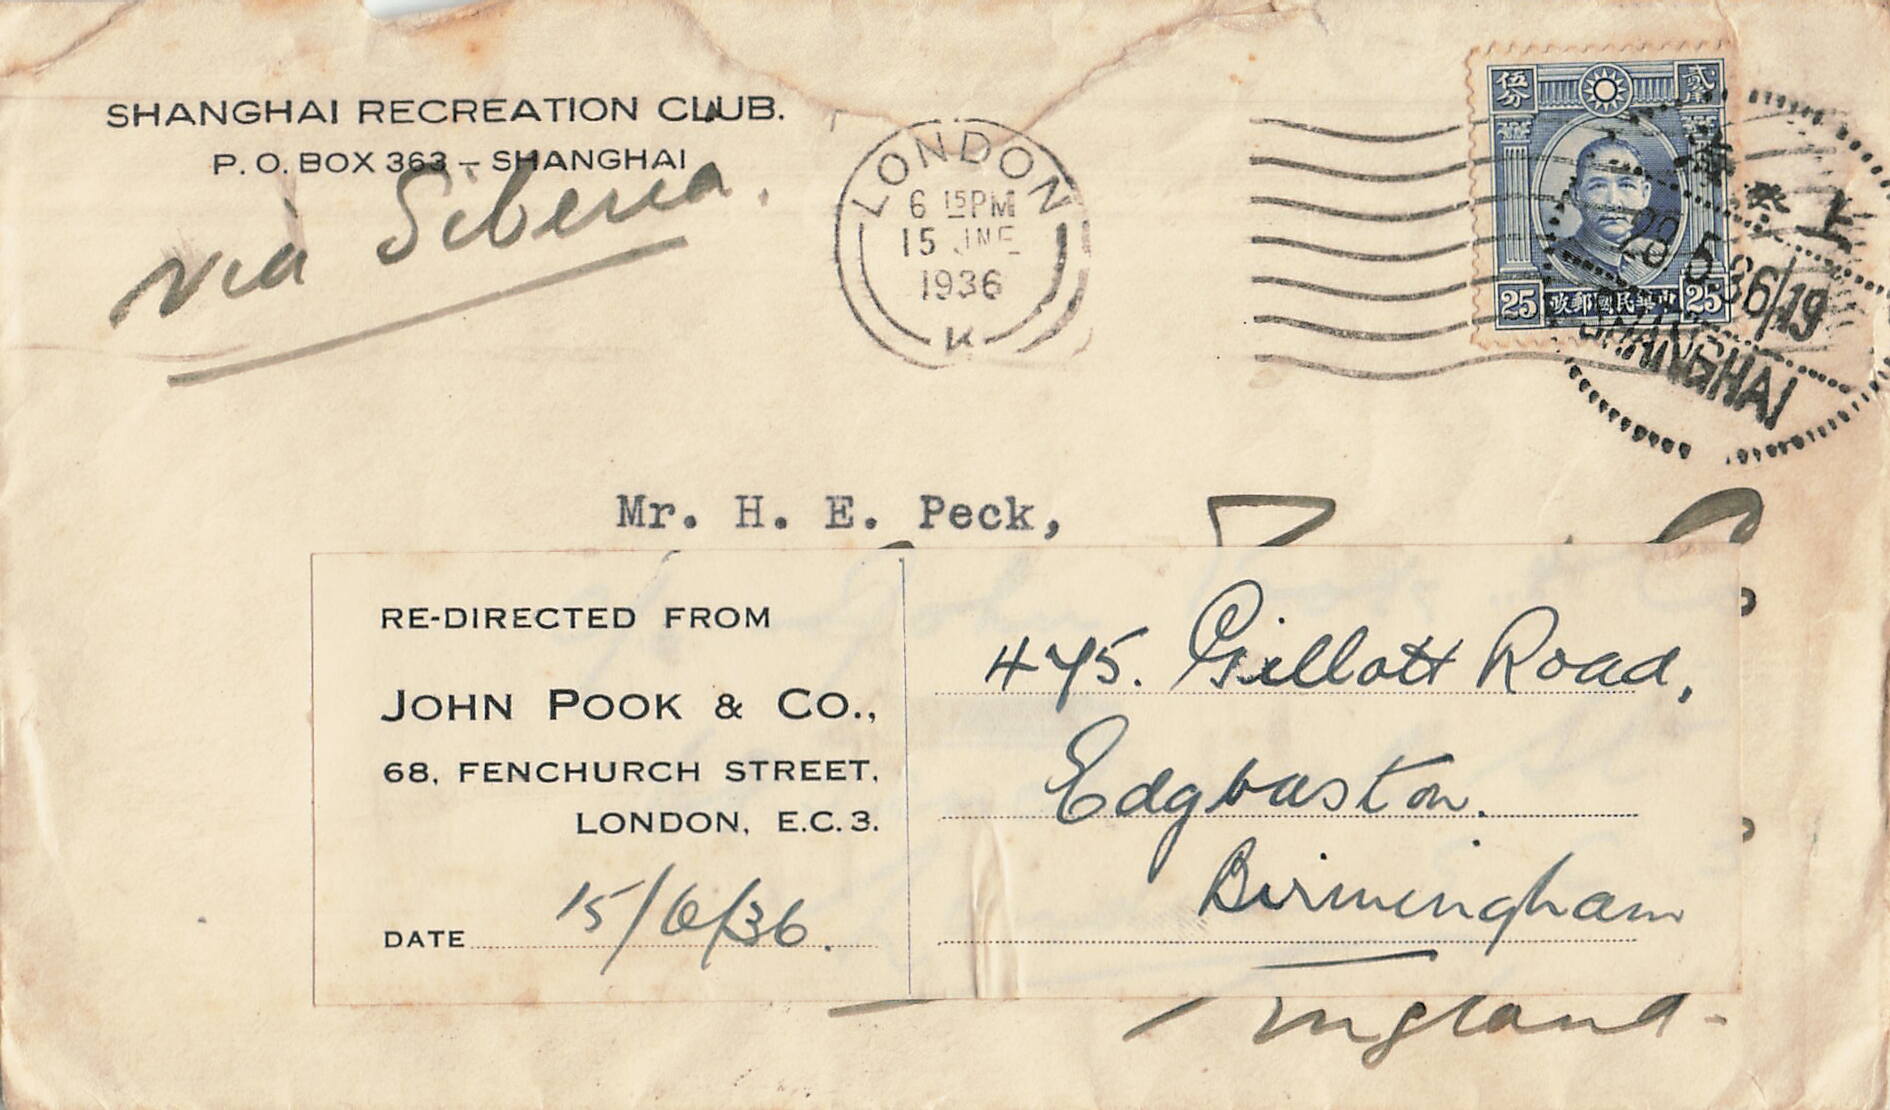 SHANGHAI RECREATION CLUB.
P. O. BOX 363 – SHANGHAI
via Siberia.
LONDON
6 15PM
15 JNE
1936
K
伍分 貳角
25 中華民國郵政 25
上
28 5 36/19
SHANGHAI
Mr. H. E. Peck,
RE-DIRECTED FROM
JOHN POOK & CO.,
68, FENCHURCH STREET,
LONDON, E.C. 3.
DATE 15/6/36.
475. Gillott Road,
Edgbaston.
Birmingham
England.